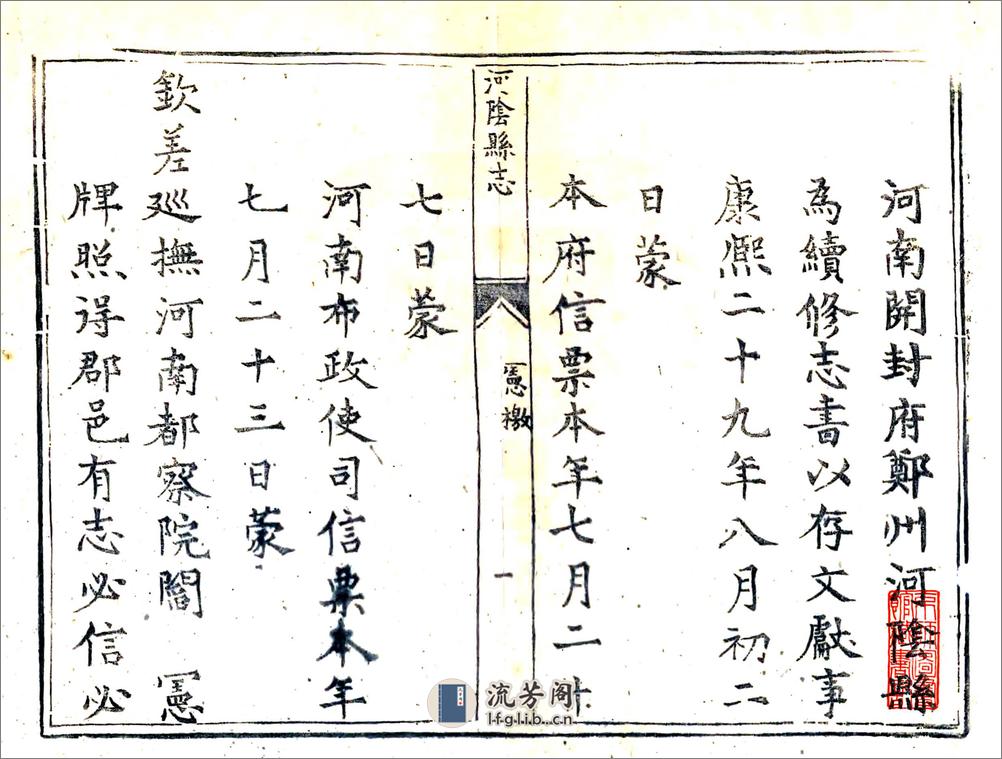 河南開封府鄭州河陰縣
為續修志書以存文獻事
康熙二十九年八月初二
日蒙
本府信票本年七月二十
河陰縣志
憲檄
一
七日蒙
河南布政使司信票本年
七月二十三日蒙
欽差巡撫河南都察院閻 憲
牌照得郡邑有志必信必
流芳阁
lfglib.cn